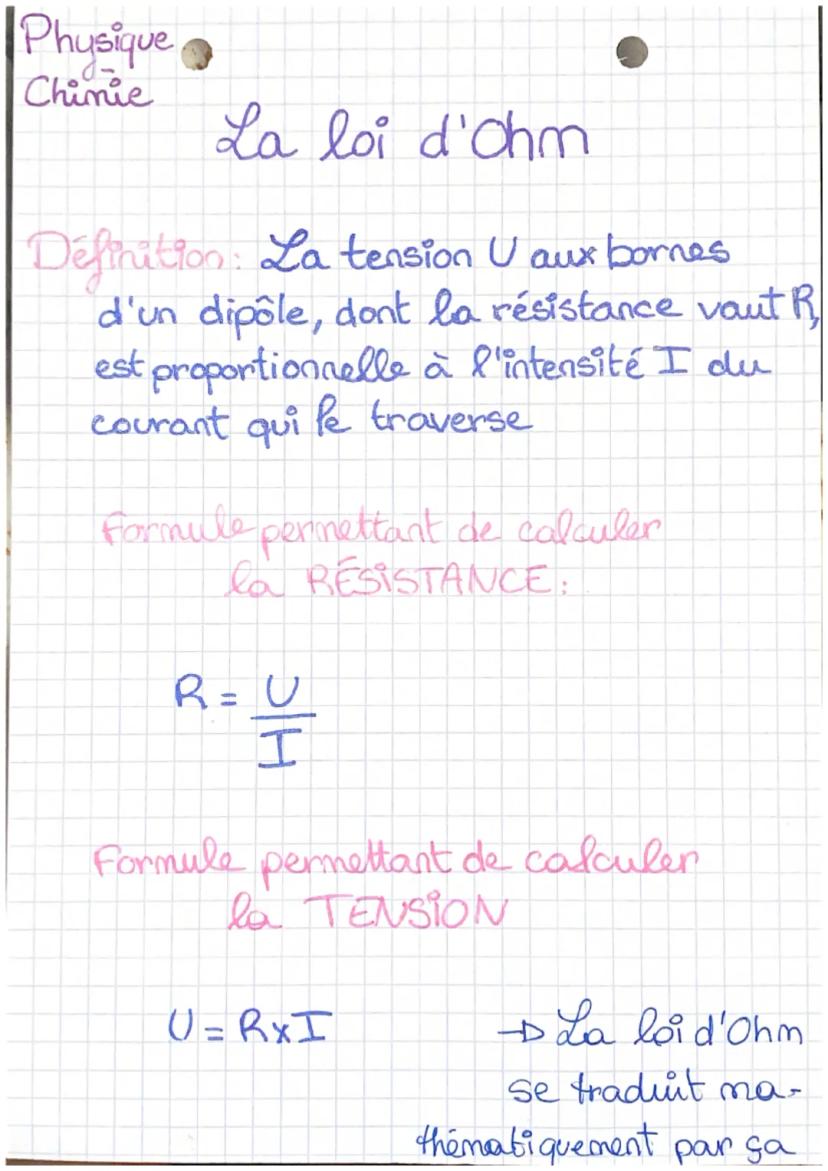 Physique
Chimie
La loi d'Ohm
Définition: La tension U aux bornes
d'un dipôle, dont la résistance vaut R,
est proportionnelle à l'intensité I du
courant qui le traverse
Formule permettant de calculer
la RÉSISTANCE:
R = U
I
Formule permettant de calculer
la TENSION
U = R x I
→ La loi d'Ohm
se traduit ma-
thématiquement par ça